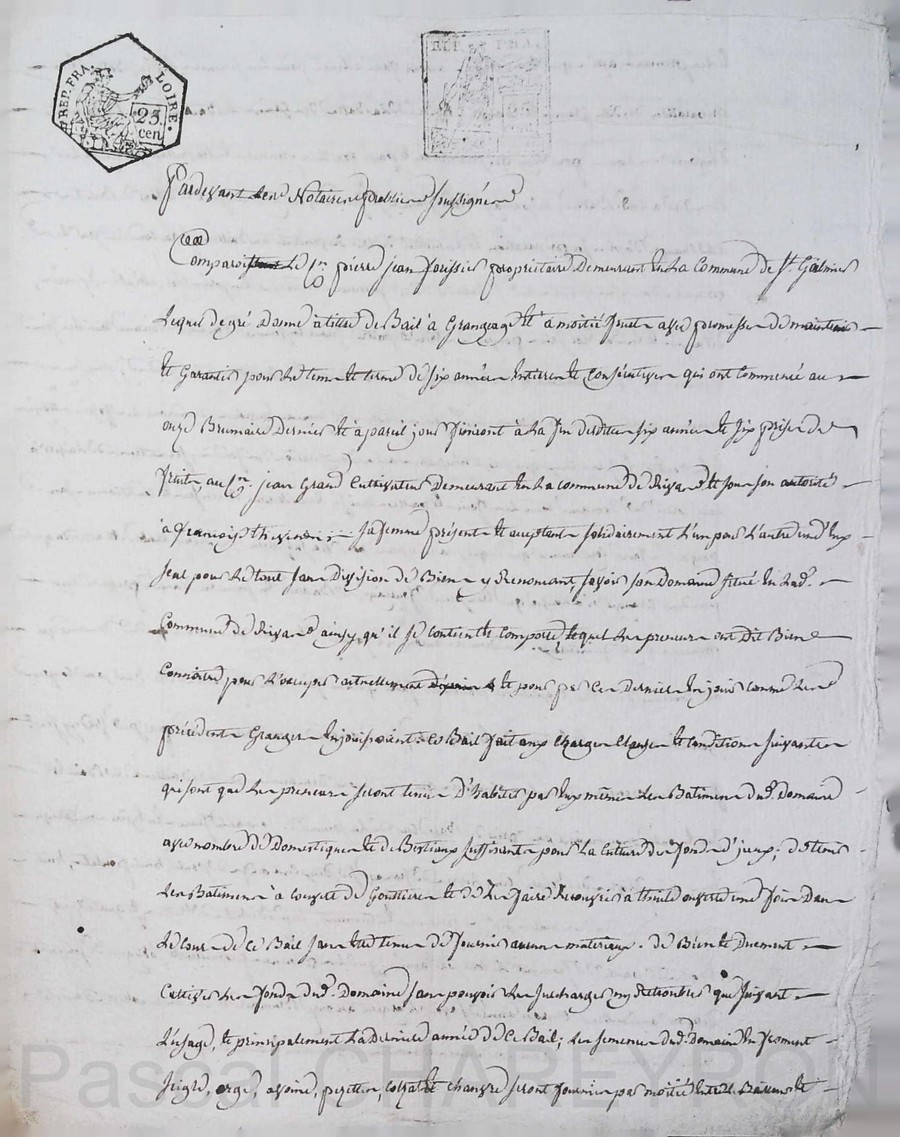 REP. FRA. LOIRE.
25
cen
Pardevant les Notaires publics soussignés
Comparoit le Sr. pierre jean proprietaire Demeurant En La Commune De St. Galmier
Lequel de gré Donne à titre de Bail à Grangeage Et à moitié fruit avec promesse de maintenir
Et Garantir pour Le tems Et terme de six années Entieres Et Consécutives qui ont Commencé au
onze Brumaire Dernier Et à pareil jour finiront à La fin desdites six années Et six prises de
fruits, au Sr. jean Grand Cultivateur Demeurant En La commune de Et sous son autorité
à françoise sa femme présents Et acceptants solidairement L'un pour L'autre un d'Eux
seul pour Le tout sans Division de Biens y Renoncant, savoir son Domaine situé En Lad.
Commune de ainsy qu'il se Contient Et Comporte, Lequel Les preneurs ont Dit Bien
Connoitre pour L'occuper actuellement Et pour par Ce Dernier En jouir comme Les
précédents Grangers En jouissoient: Ce Bail fait aux Charges Clauses Et Conditions suivantes
qui sont que Les preneurs seront tenus D'habiter par Eux mêmes Les Batimens dud. Domaine
avec nombre de Domestiques Et de Bestiaux suffisants pour La Culture des fonds d'jceux; de tenir
Les Batimens à Couvert de Gouttieres Et de Les faire Recouvrir à thuile ouverte une fois Dans
Le Cours de Ce Bail sans Etre tenus de fournir aucuns materiaux. de Bien Et Duement
Cultiver Les fonds dud. Domaine sans pouvoir Les surcharger ny Retroubler que suivant
L'usage, Et principalement La Derniere année de Ce Bail; Les semences dud. Domaine En froment
seigle, orge, avoine, pezettes, Colzat Et chanvre seront fournies par moitié Entre Le Bailleur Et
Pascal CHAPEYRON